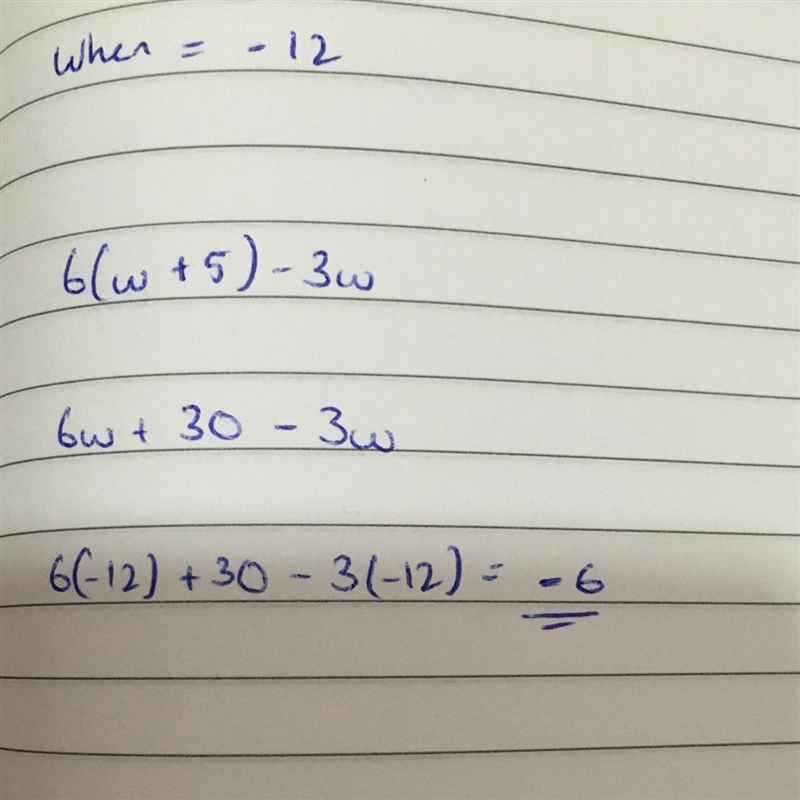 when = -12
6(w + 5) - 3w
6w + 30 - 3w
6(-12) + 30 - 3(-12) = -6